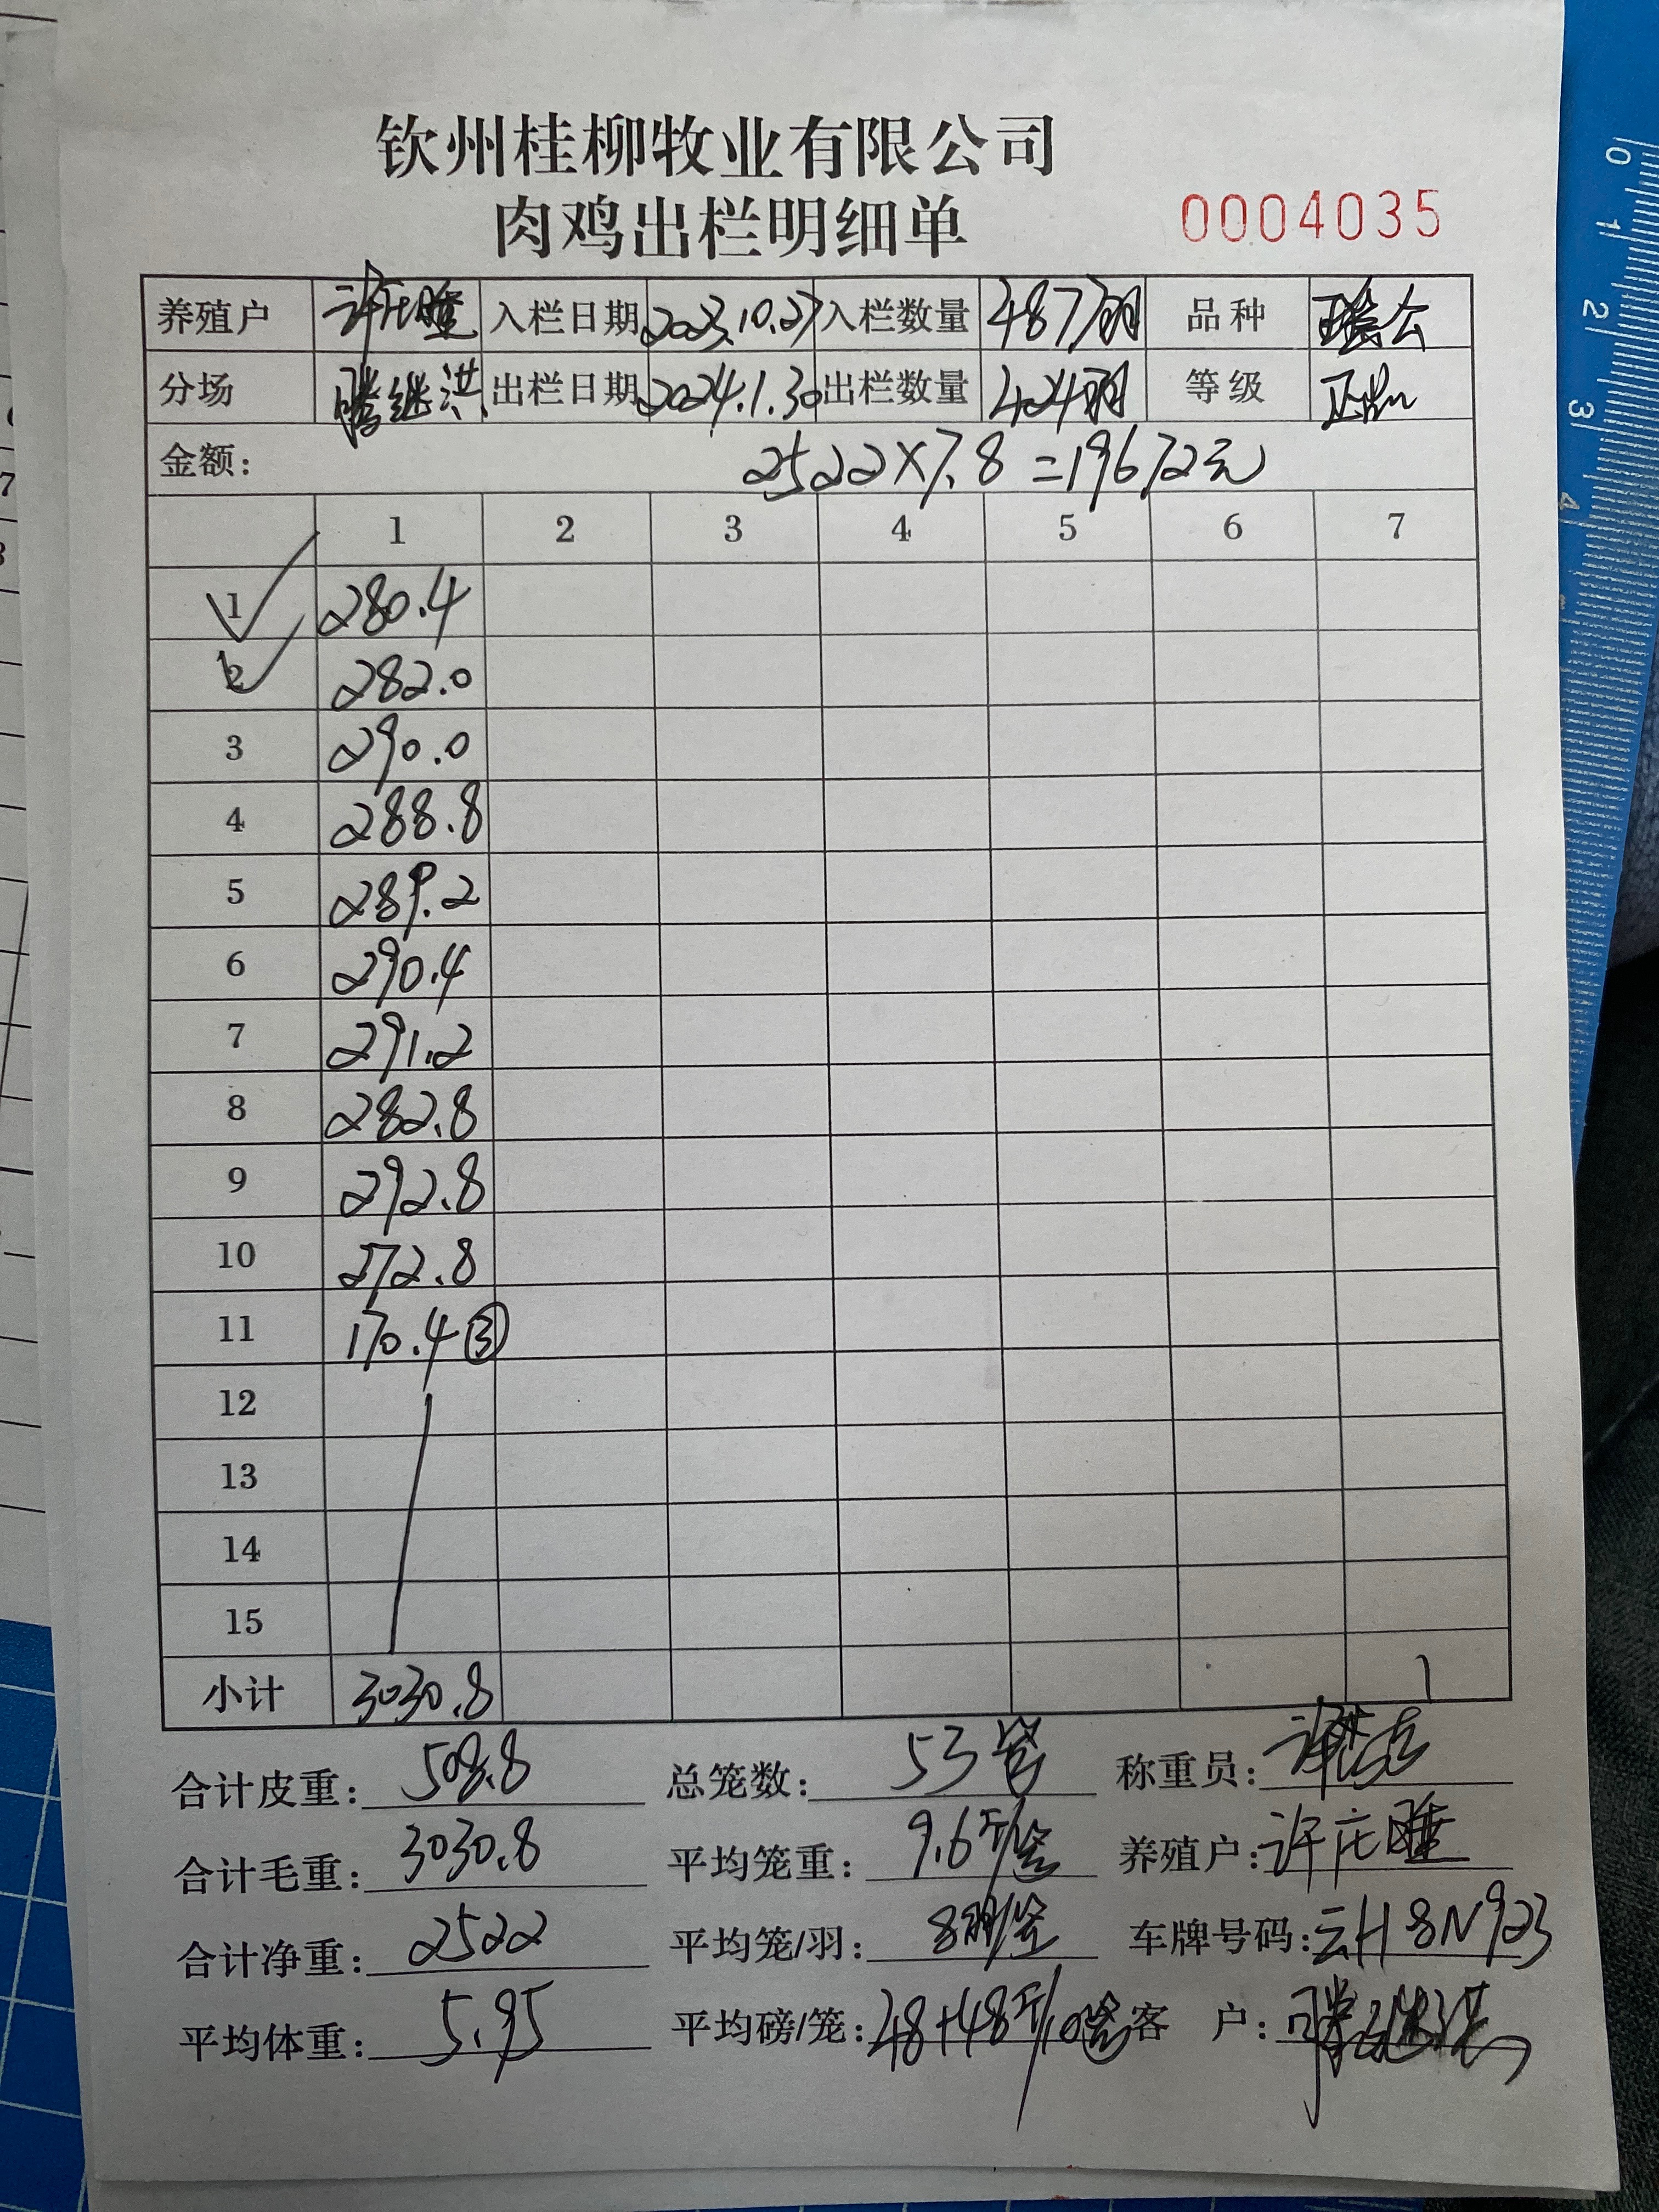 钦州桂柳牧业有限公司
肉鸡出栏明细单 0004035
养殖户 入栏日期 2023.10.27 入栏数量 487羽 品种 瑞公
分场 滕继洪 出栏日期 2024.1.30 出栏数量 424羽 等级 正品
金额: 2522×7.8=19672元
1 2 3 4 5 6 7
1 280.4
2 282.0
3 290.0
4 288.8
5 289.2
6 290.4
7 291.2
8 282.8
9 292.8
10 272.8
11 170.4 ③
12
13
14
15
小计 3030.8
合计皮重: 508.8 总笼数: 53笼 称重员:
合计毛重: 3030.8 平均笼重: 9.6斤/笼 养殖户:
合计净重: 2522 平均笼/羽: 8羽/笼 车牌号码: 云H8N923
平均体重: 5.95 平均磅/笼: 客 户: 滕继洪